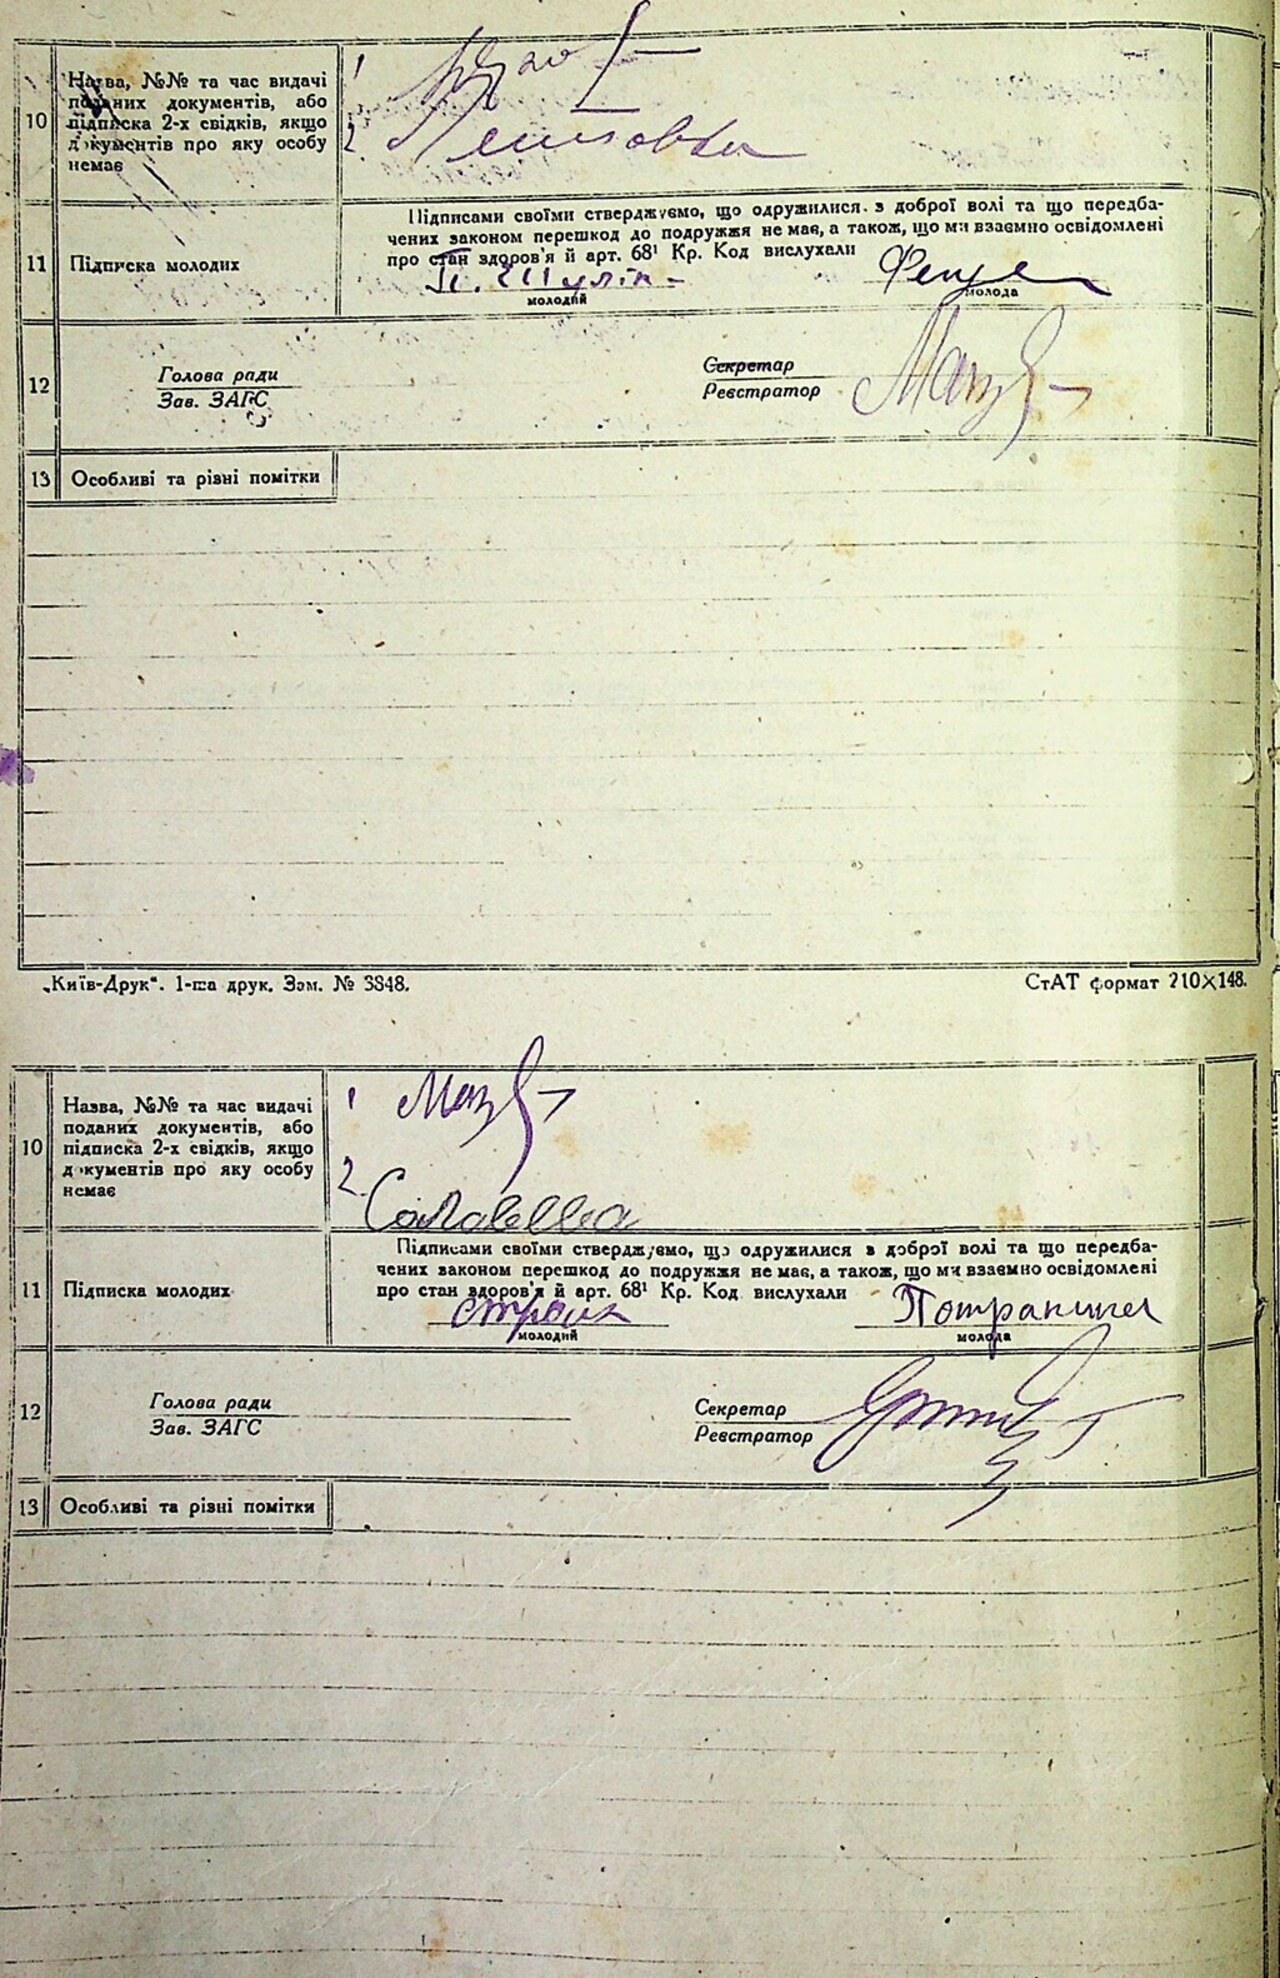 10
Назва, №№ та час видачі
поданих документів, або
підписка 2-х свідків, якщо
документів про яку особу
немає
1
2
11
Підписка молодих
Підписами своїми стверджуємо, що одружилися з доброї волі та що передба-
чених законом перешкод до подружжя не має, а також, що ми взаємно освідомлені
про стан здоров'я й арт. 68¹ Кр. Код вислухали
П. Шулік
молодий
молода
12
Голова ради
Зав. ЗАГС
Секретар
Реєстратор
13
Особливі та різні помітки
„Київ-Друк“. 1-ша друк. Зам. № 3848.
СтАТ формат 210×148.
10
Назва, №№ та час видачі
поданих документів, або
підписка 2-х свідків, якщо
документів про яку особу
немає
1
2.
11
Підписка молодих
Підписами своїми стверджуємо, що одружилися з доброї волі та що передба-
чених законом перешкод до подружжя не має, а також, що ми взаємно освідомлені
про стан здоров'я й арт. 68¹ Кр. Код вислухали
молодий
молода
12
Голова ради
Зав. ЗАГС
Секретар
Реєстратор
13
Особливі та різні помітки